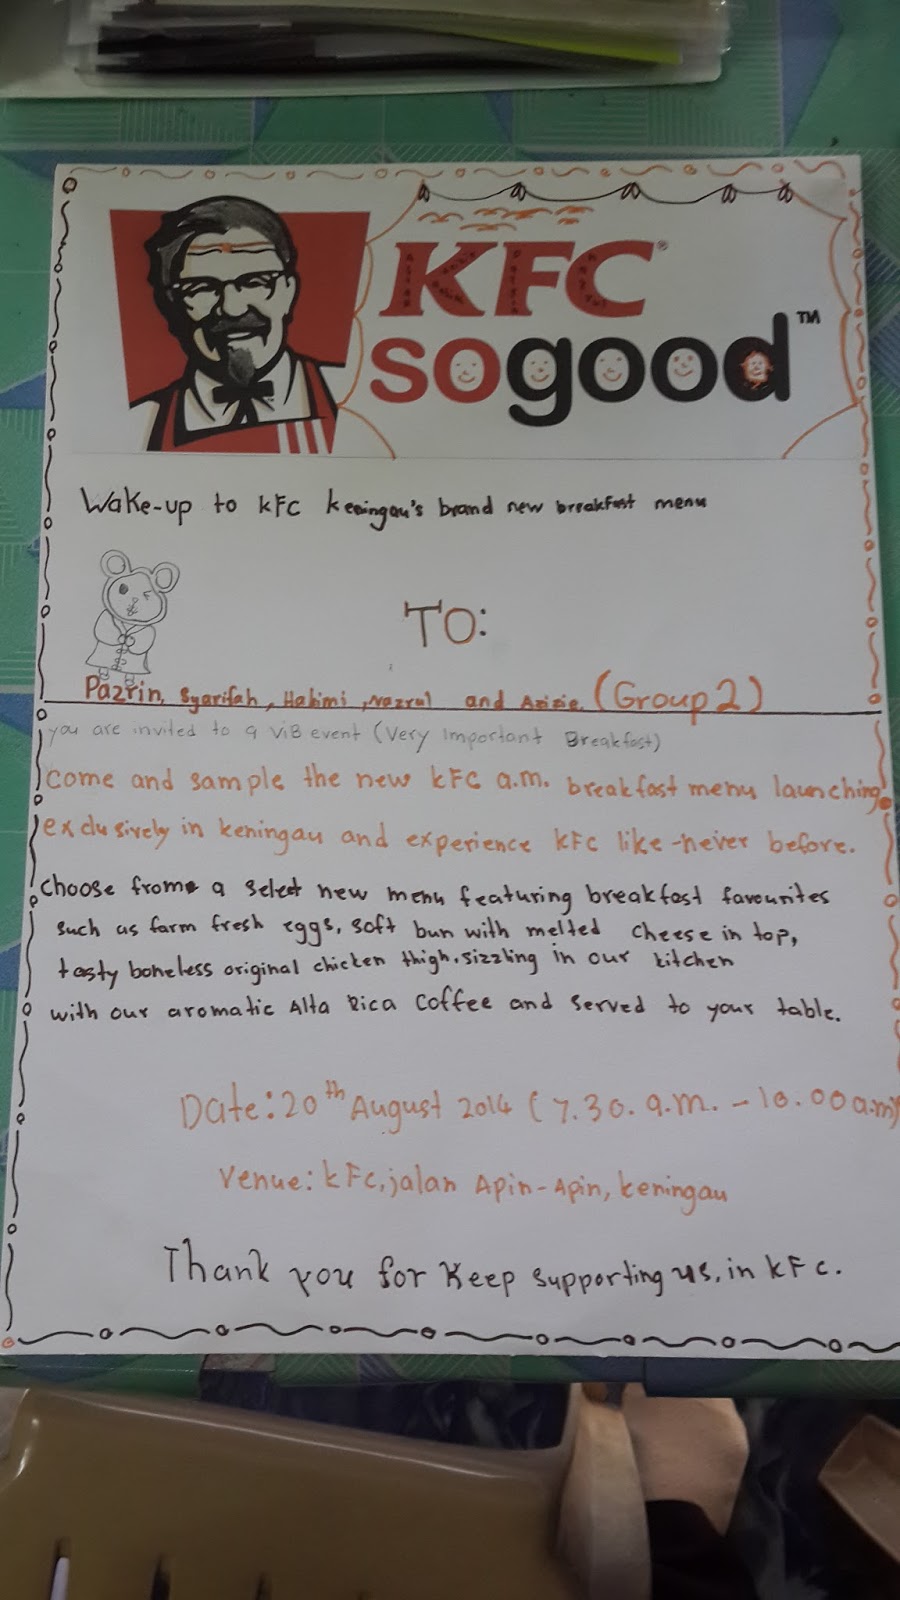 KFC®
sogood™
Wake-up to KFC Keningau's brand new breakfast menu
TO:
Pazrin, Syarifah, Hakimi, Nazrul and Azizie (Group 2)
you are invited to a ViB event (Very Important Breakfast)
come and sample the new KFC a.m. breakfast menu launching
exclusively in keningau and experience KFC like-never before.
Choose frome a select new menu featuring breakfast favourites
such as farm fresh eggs, soft bun with melted cheese in top,
tasty boneless original chicken thigh, sizzling in our kitchen
with our aromatic Alta Rica Coffee and served to your table.
Date: 20th August 2014 (7.30. a.m. - 10.00 a.m)
Venue: KFC, jalan Apin-Apin, keningau
Thank you for Keep supporting us, in KFC.